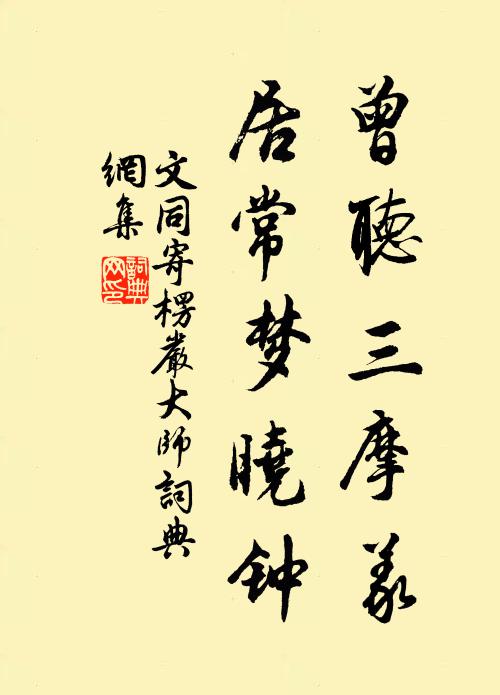 曾聽三摩義
居常梦曉钟
文同寄楞嚴大師詞典
網集
詞典網印